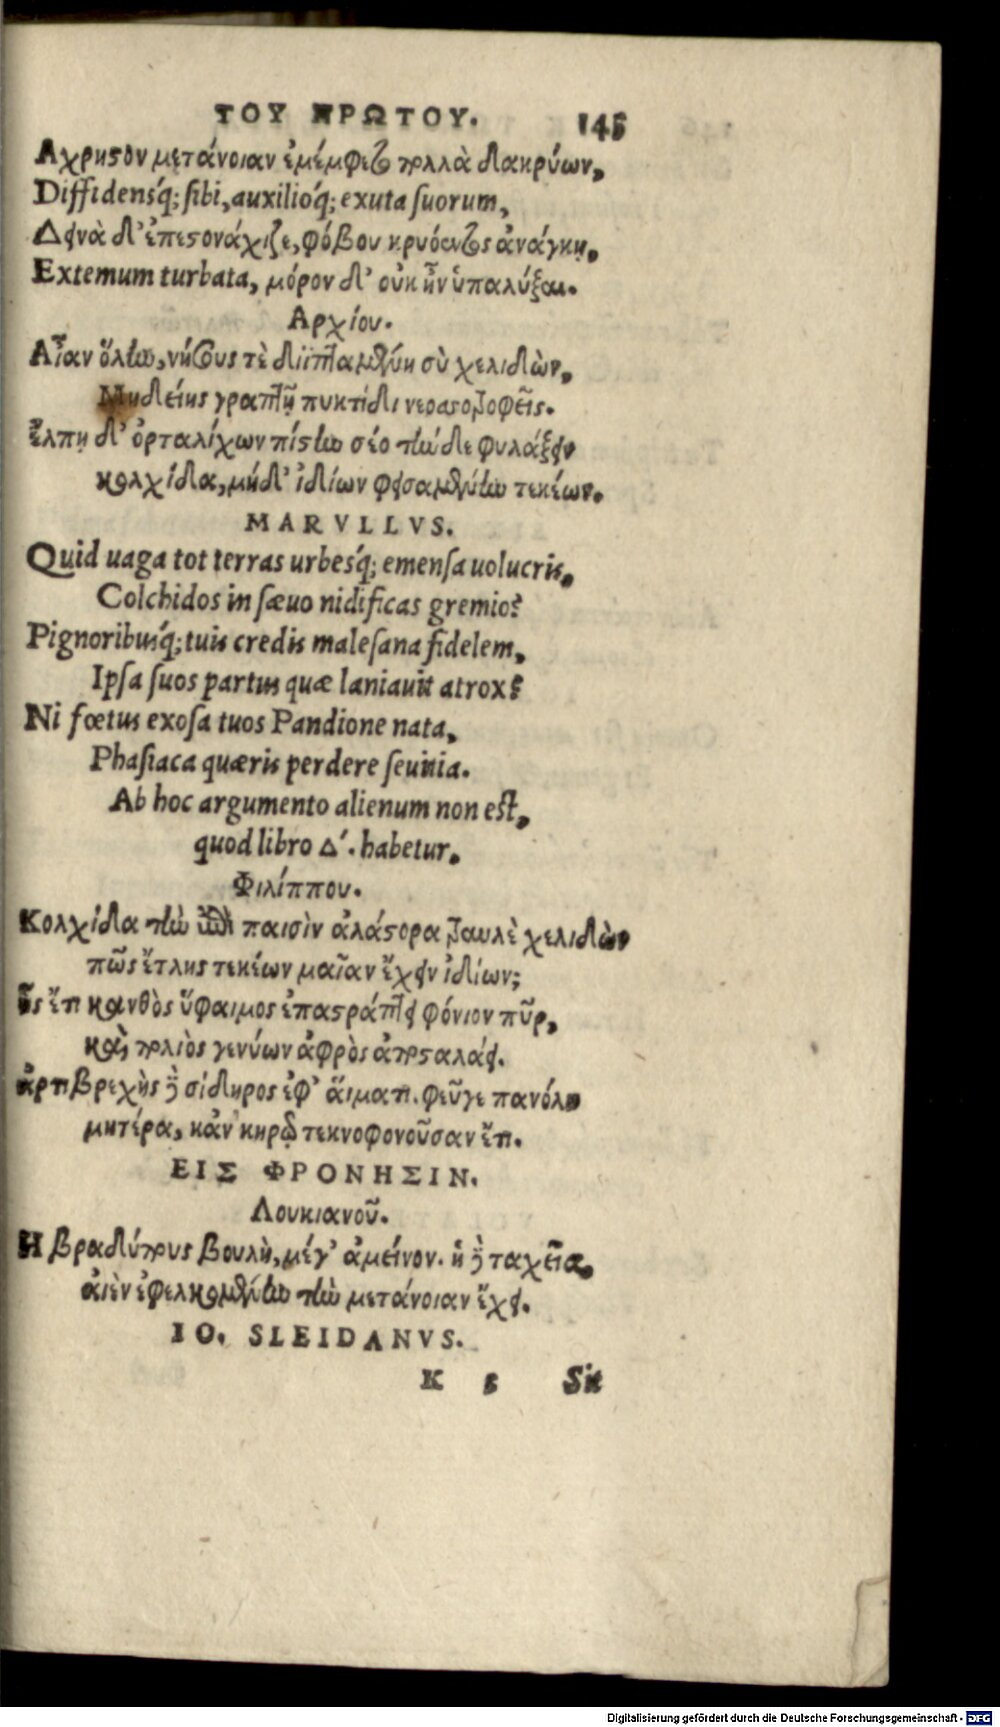 ΤΟΥ ΠΡΩΤΟΥ. 145
Αχρηστον μετάνοιαν ἐμέμφετο πολλὰ δακρύων,
Diffidensq́; sibi, auxilioq́; exuta suorum,
Δεινὰ δ' ἐπεστονάχιζε, φόβου κρυόεντος ἀνάγκῃ,
Extemum turbata, μόρον δ' οὐκ ἦν ὑπαλύξαι.
Αρχίου.
Αἶαν ὅλην, νήσους τὲ διϊπταμένη σὺ χελιδὼν,
Μηδείης γραπτῇ πυκτίδι νεοσσοτροφεῖς.
ἔλπῃ δ' ὀρταλίχων πίστιν σέο τήνδε φυλάξειν
κολχίδα, μήδ' ἰδίων φεισαμένην τεκέων.
MARVLLVS.
Quid uaga tot terras urbesq́; emensa uolucris,
Colchidos in sæuo nidificas gremio?
Pignoribusq́; tuis credis malesana fidelem,
Ipsa suos partus quæ laniauit atrox?
Ni fœtus exosa tuos Pandione nata,
Phasiaca quæris perdere seuitia.
Ab hoc argumento alienum non est,
quod libro Δ'. habetur.
Φιλίππου.
Κολχίδα τὴν ἐπὶ παισὶν ἀλάστορα τραυλὲ χελιδὼν
πῶς ἔτλης τεκέων μαῖαν ἔχειν ἰδίων;
ἧς ἔτι κανθὸς ὕφαιμος ἐπαστράπτει φόνιον πῦρ,
καὶ πολιὸς γενύων ἀφρὸς ἀποσταλάει.
ἀρτιβρεχὴς δὲ σίδηρος ἐφ' αἵματι. φεῦγε πανόλη
μητέρα, κἀν κηρῷ τεκνοφονοῦσαν ἔτι.
ΕΙΣ ΦΡΟΝΗΣΙΝ.
Λουκιανοῦ.
Η βραδύπους βουλὴ, μέγ' ἀμείνον. ἡ δὲ ταχεῖα,
ἀιὲν ἐφελκομένην τὴν μετάνοιαν ἔχει.
IO. SLEIDANVS.
K 5 Sit
Digitalisierung gefördert durch die Deutsche Forschungsgemeinschaft - DFG